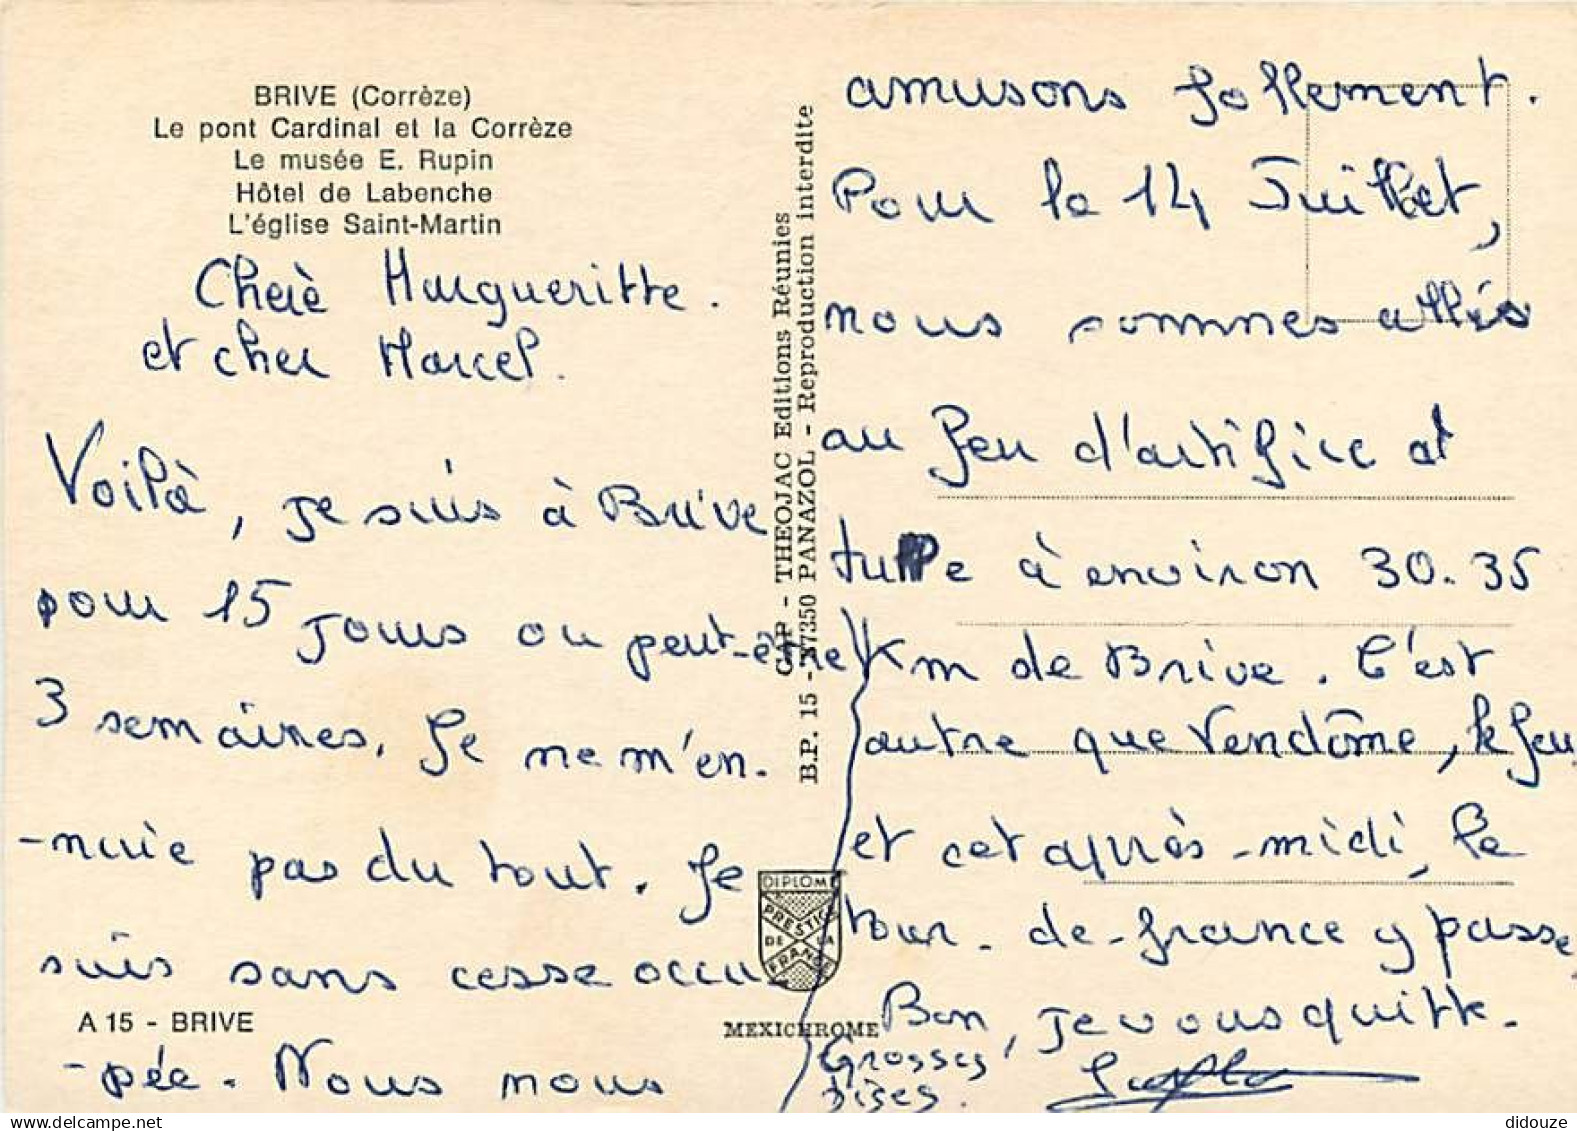 BRIVE (Corrèze)
Le pont Cardinal et la Corrèze
Le musée E. Rupin
Hôtel de Labenche
L'église Saint-Martin
Cherè Margueritte.
et cher Marcel.
Voilà, je suis à Brive
pour 15 jours ou peut-être
3 semaines. Je ne m'en-
-nuie pas du tout. Je
suis sans cesse occu-
A 15 - BRIVE
-pée. Nous nous
CAP - THEOJAC Editions Réunies
B.P. 15 - 87350 PANAZOL - Reproduction interdite
DIPLOME
PRESTIGE
DE LA
FRANCE
MEXICHROME
amusons follement.
Pour le 14 Juillet,
nous sommes allés
au feu d'artifice at
tuppe à environ 30.35
Km de Brive. C'est
autre que Vendôme, le feu
et cet après-midi, le
tour-de-france y passe
Bon, je vous quitte.
Grosses
bises.
didouze